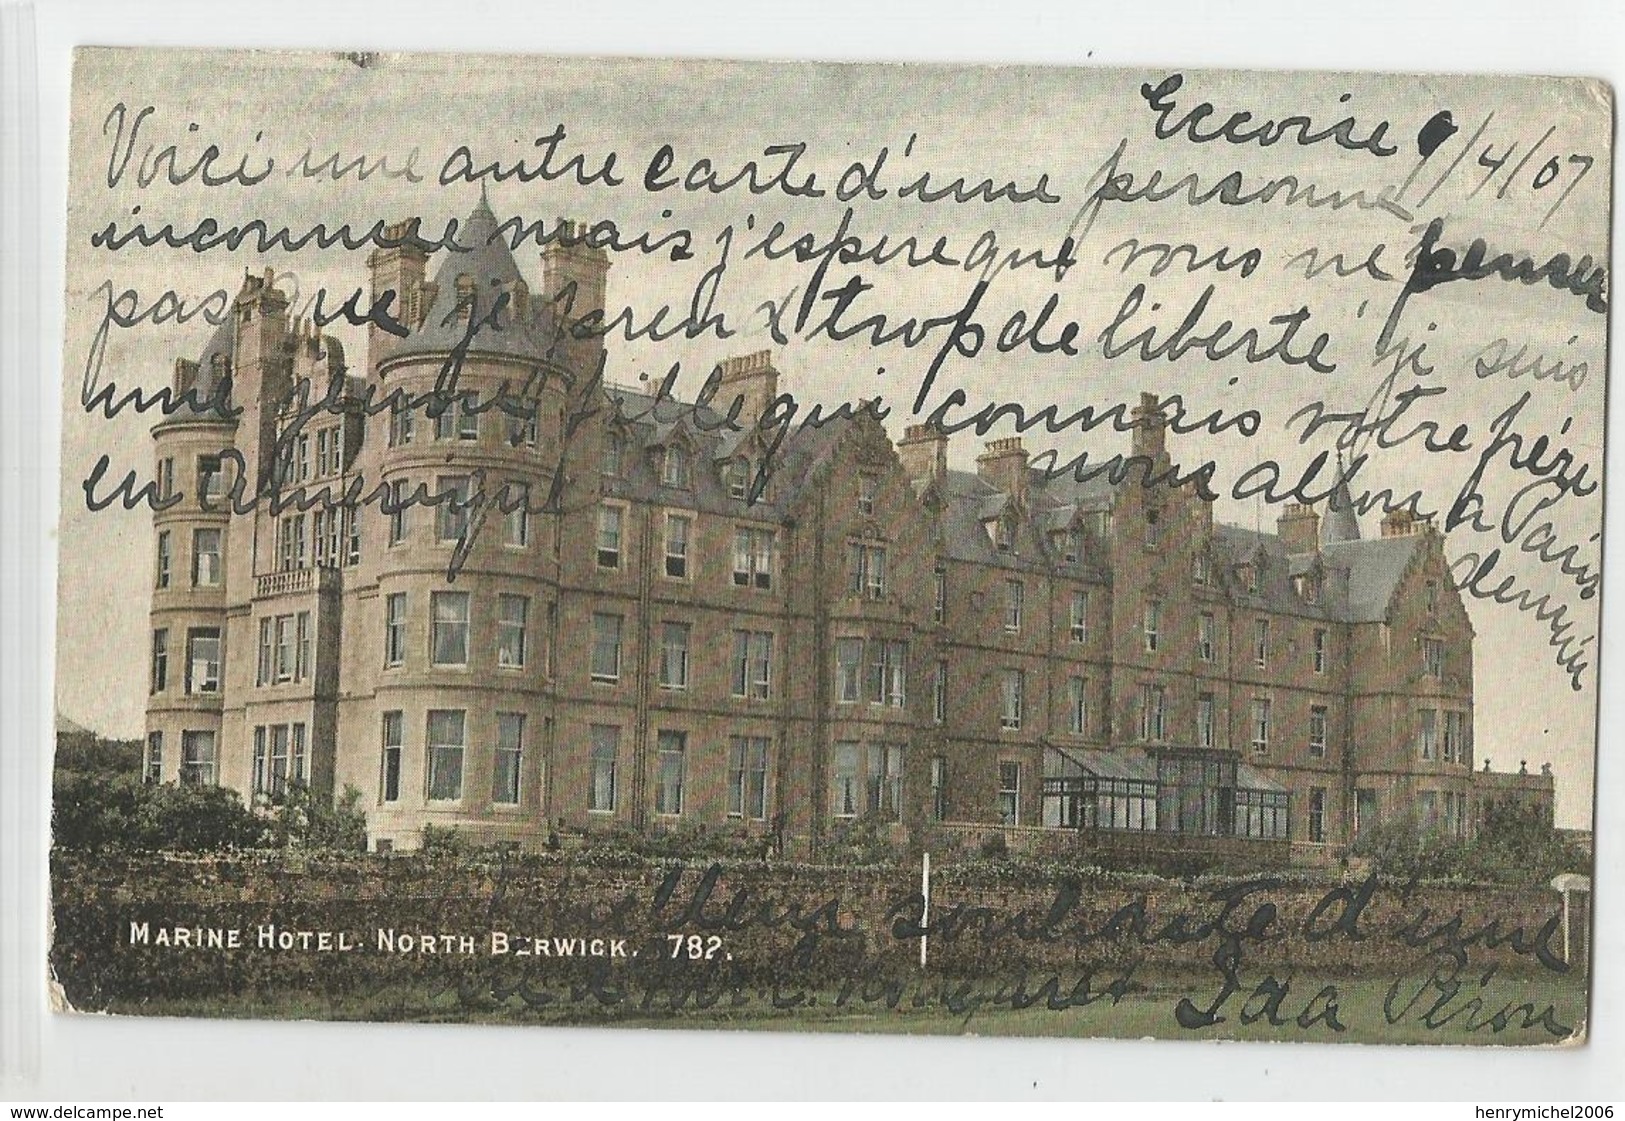 Eccoise 9/4/07
Voici une autre carte d'une personne
inconnue mais j'espere que vous ne penser
pas que je prend trop de liberté je suis
une jeune fille qui connais votre père
en Amerique nous allon a Paris
demain
Meilleur souhaite d'une
Margaret Ida Péron
MARINE HOTEL. NORTH BERWICK. 782.
www.delcampe.net
henrymichel2006